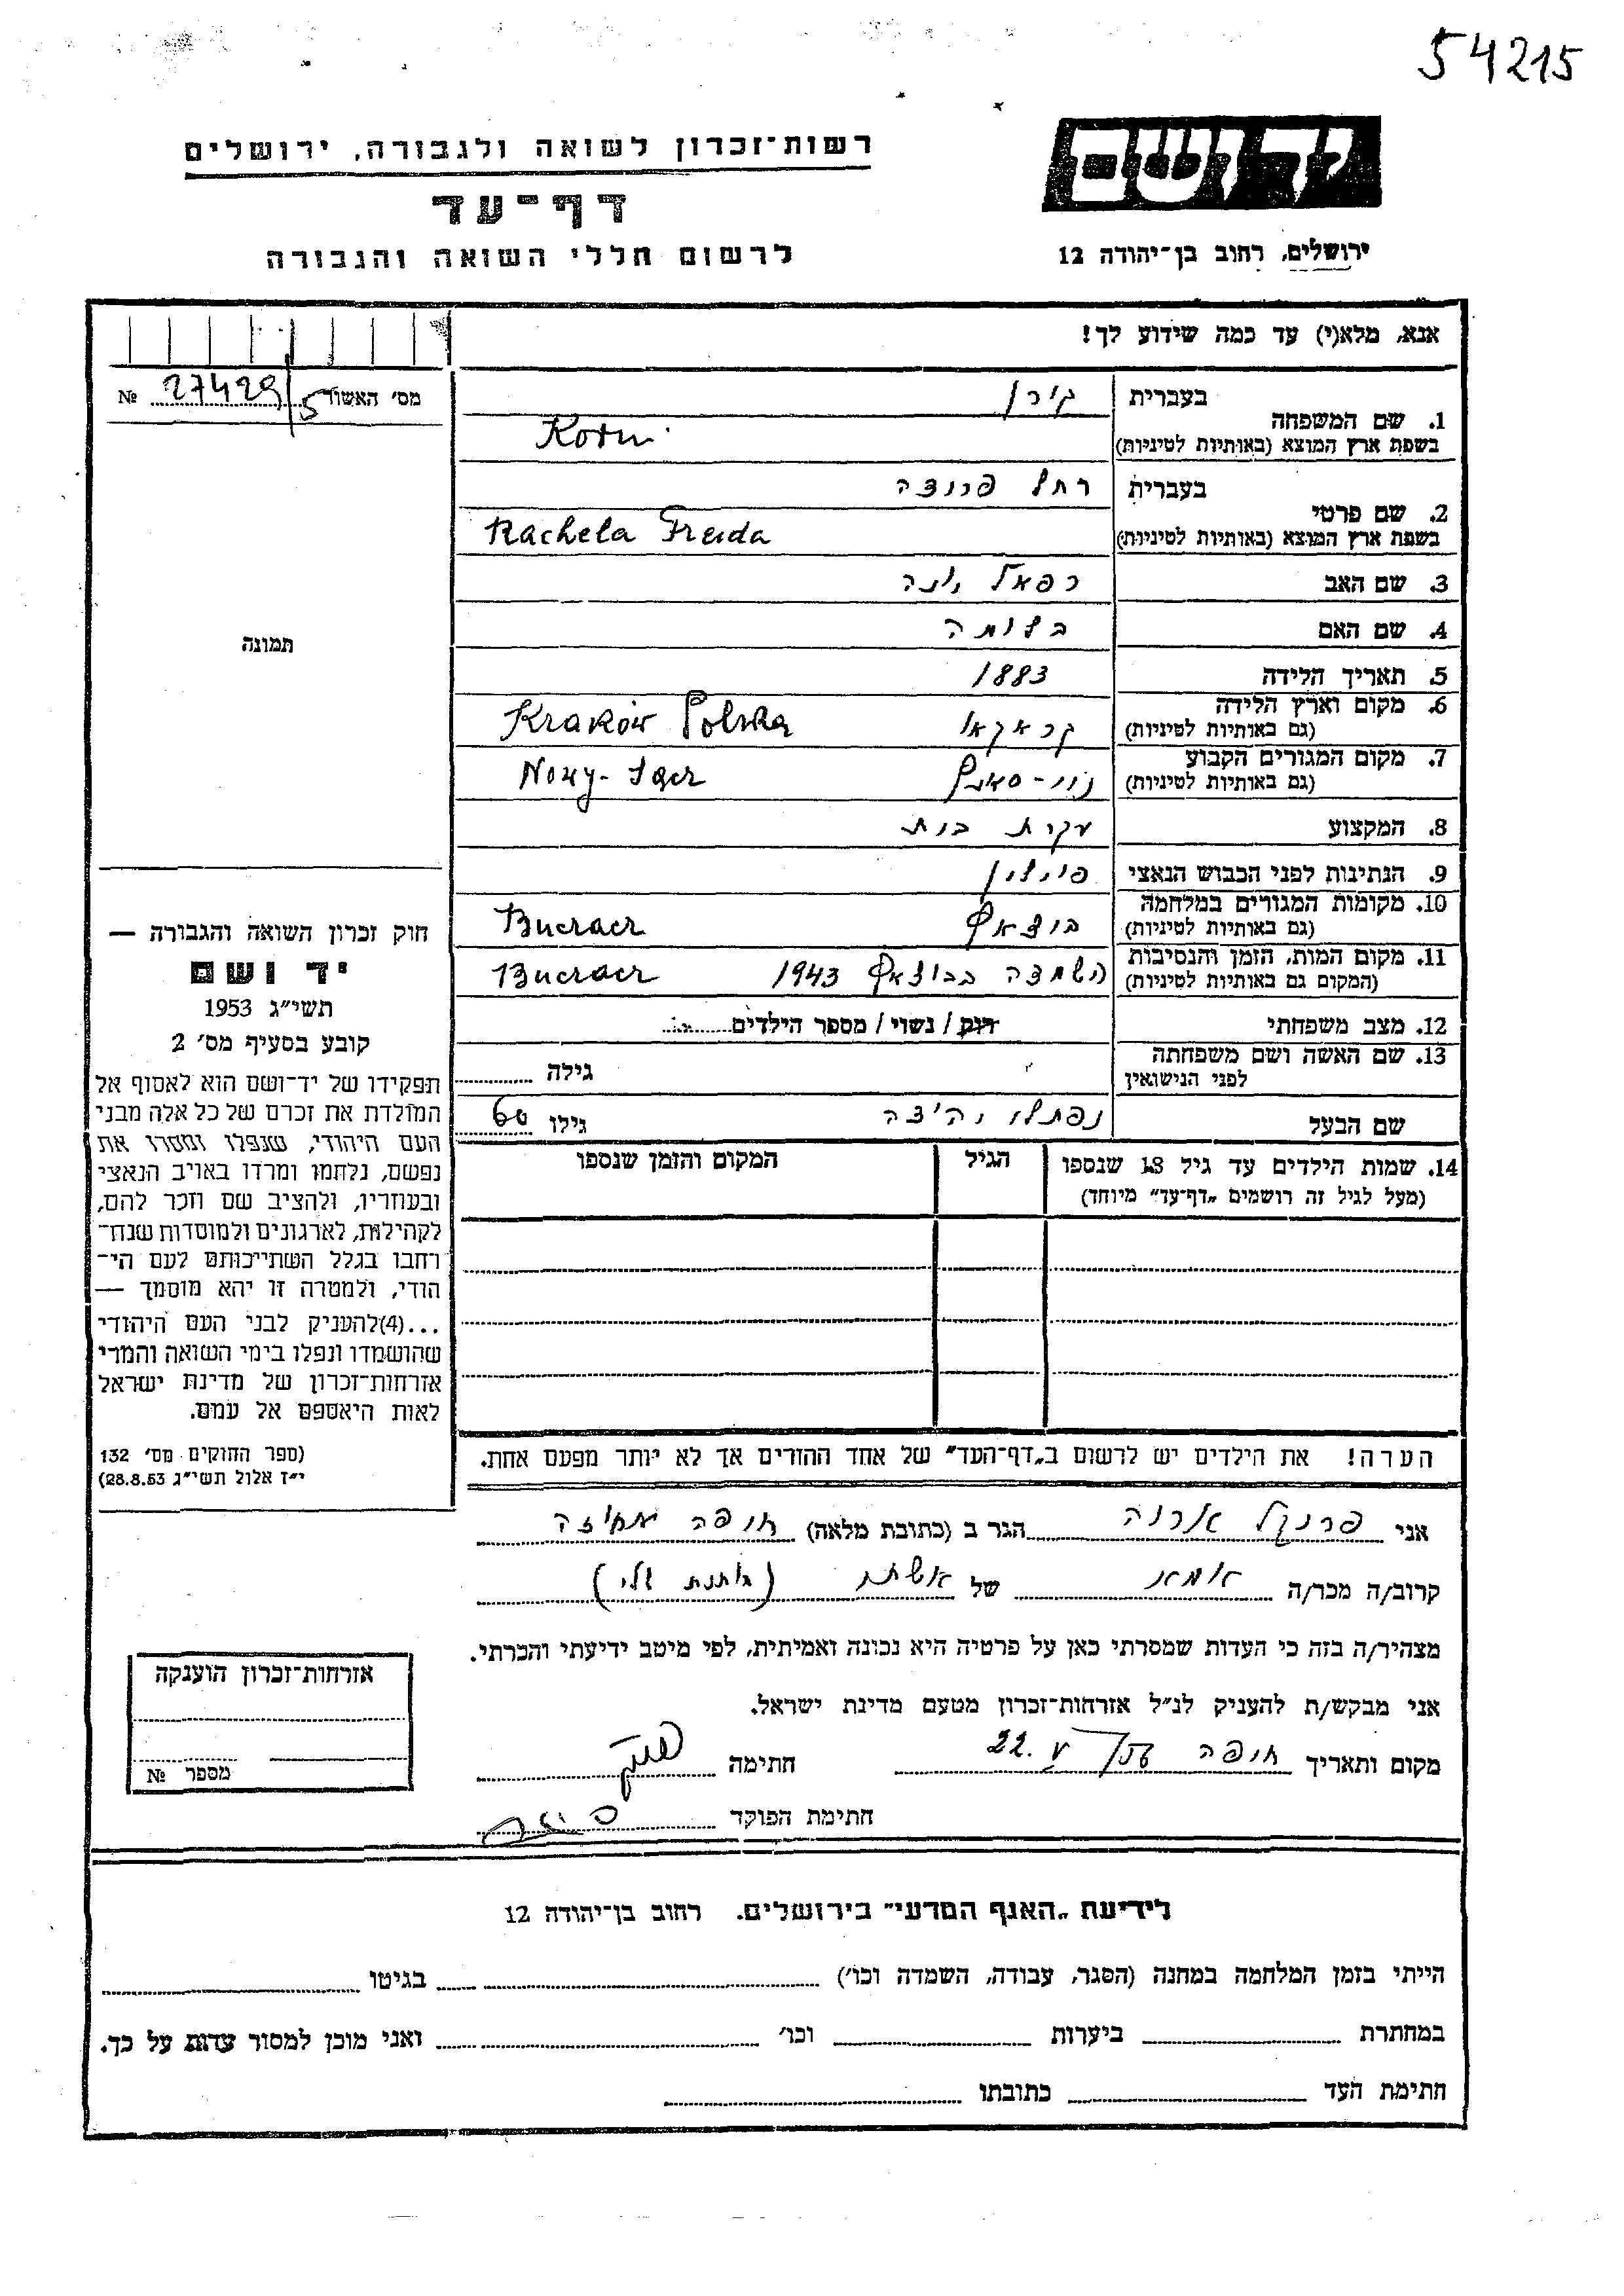 54215
יד ושם
רשות־זכרון לשואה ולגבורה, ירושלים
דף־עד
לרשום חללי השואה והגבורה
ירושלים, רחוב בן־יהודה 12
אנא, מלא(י) עד כמה שידוע לך!
מס׳ האשור 27429/5 №
1. שם המשפחה
בעברית קורן
בשפת ארץ המוצא (באותיות לטיניות) Korn
2. שם פרטי
בעברית רחל פרידה
בשפת ארץ המוצא (באותיות לטיניות) Rachela Freida
3. שם האב רפאל יונה
4. שם האם
5. תאריך הלידה 1883
6. מקום וארץ הלידה
(גם באותיות לטיניות) קראקאו Kraków Polska
7. מקום המגורים הקבוע
(גם באותיות לטיניות) נווי-סאנץ
8. המקצוע עקרת בית
9. הנתינות לפני הכבוש הנאצי פולין
10. מקומות המגורים במלחמה
(גם באותיות לטיניות) בוצאץ Buczacz
11. מקום המות, הזמן והנסיבות
(המקום גם באותיות לטיניות) הושמדה בבוצאץ 1943 Buczacz
12. מצב משפחתי רווק / נשוי / מספר הילדים
13. שם האשה ושם משפחתה
לפני הנישואין גילה
שם הבעל נפתלי גילו 60
14. שמות הילדים עד גיל 18 שנספו
(מעל לגיל זה רושמים „דף־עד״ מיוחד)
הגיל
המקום והזמן שנספו
תמונה
חוק זכרון השואה והגבורה —
יד ושם
תשי״ג 1953
קובע בסעיף מס׳ 2
תפקידו של יד־ושם הוא לאסוף אל
המולדת את זכרם של כל אלה מבני
העם היהודי, שנפלו ומסרו את
נפשם, נלחמו ומרדו באויב הנאצי
ובעוזריו, ולהציב שם וזכר להם,
לקהילות, לארגונים ולמוסדות שנח־
רחבו בגלל השתייכותם לעם הי־
הודי, ולמטרה זו יהא מוסמך —
...(4)להעניק לבני העם היהודי
שהושמדו ונפלו בימי השואה והמרי
אזרחות־זכרון של מדינת ישראל
לאות היאספם אל עמם.
(ספר החוקים מס׳ 132
י״ז אלול תשי״ג 28.8.53)
הערה! את הילדים יש לרשום ב„דף־העד״ של אחד ההורים אך לא יותר מפעם אחת.
אני פרנקל הגר ב (כתובת מלאה) חיפה
קרוב/ה מכר/ה אמא של אשתי (חותנת שלי)
מצהיר/ה בזה כי העדות שמסרתי כאן על פרטיה היא נכונה ואמיתית, לפי מיטב ידיעתי והכרתי.
אני מבקש/ת להעניק לנ״ל אזרחות־זכרון מטעם מדינת ישראל.
מקום ותאריך חיפה 22. V 56 חתימה
חתימת הפוקד
אזרחות־זכרון הוענקה
מספר №
לידיעת „האגף המדעי״ בירושלים. רחוב בן־יהודה 12
הייתי בזמן המלחמה במחנה (הסגר, עבודה, השמדה וכו׳) בגיטו
במחתרת ביערות וכו׳ ואני מוכן למסור עדות על כך.
חתימת העד כתובתו